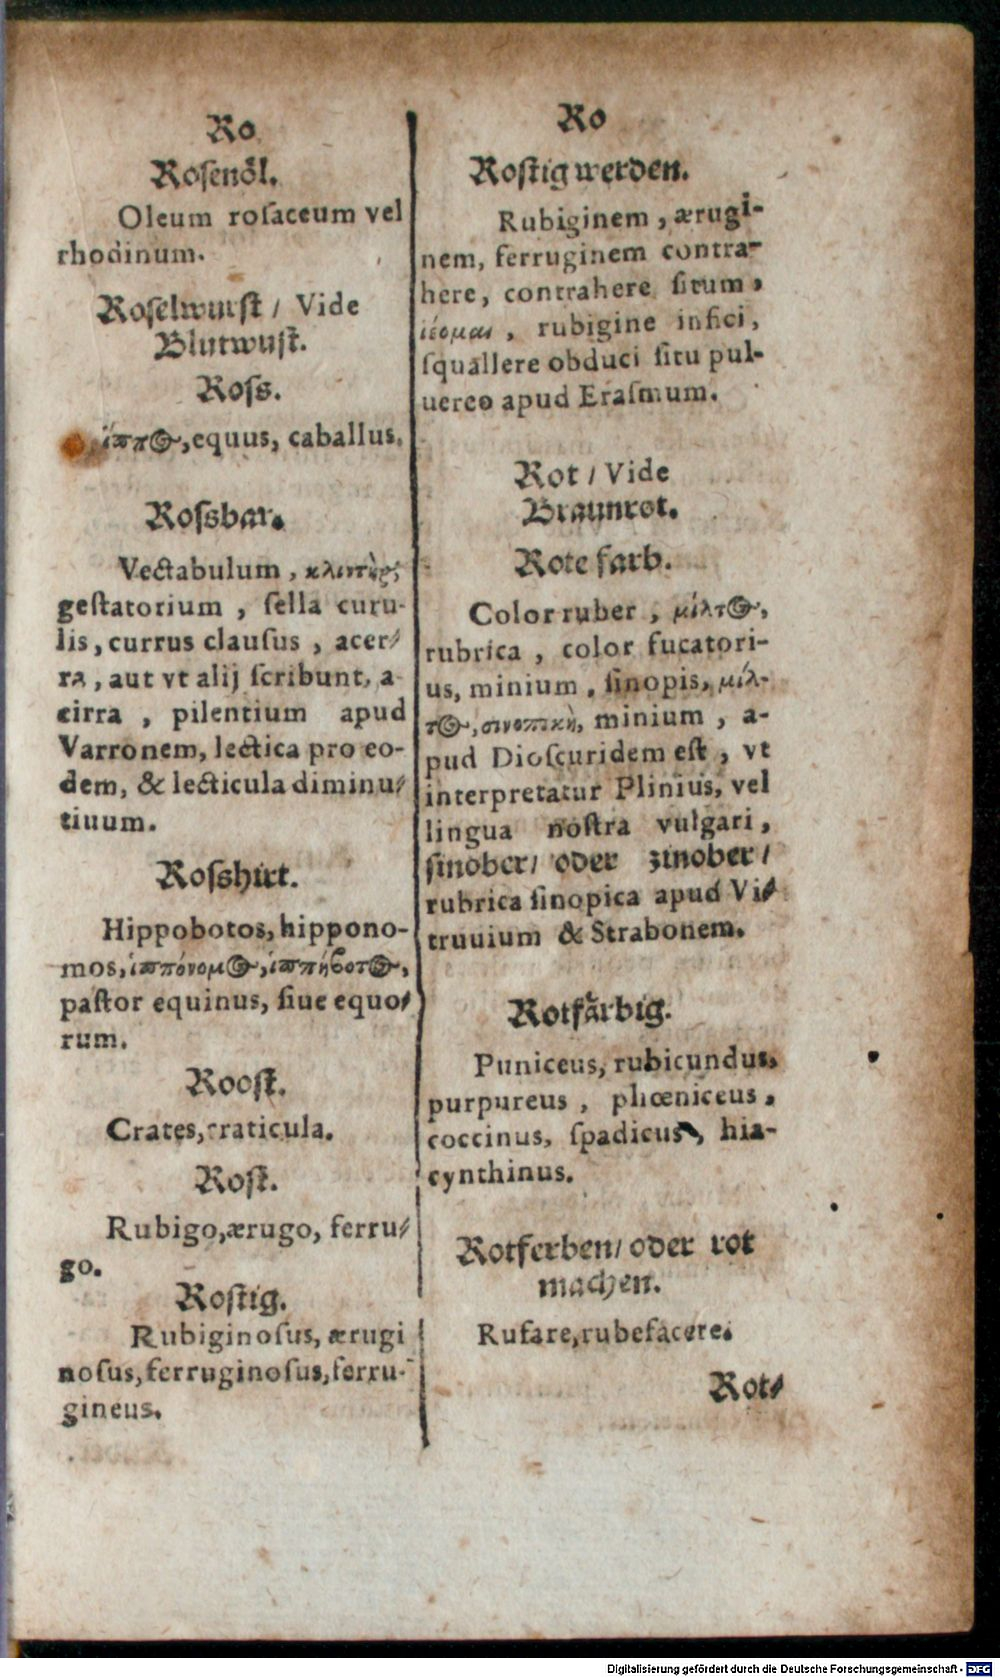 Ro
Rosenöl.
Oleum rosaceum vel
rhodinum.
Roselwurst / Vide
Blutwust.
Ross.
ἵππος, equus, caballus.
Rossbar.
Vectabulum,
gestatorium, sella curu-
lis, currus clausus, acer-
ra, aut vt alij scribunt, a
cirra, pilentium apud
Varronem, lectica pro eo-
dem, & lecticula diminu-
tiuum.
Rosshirt.
Hippobotos, hippono-
mos, ἱππόνομος, ἱππήβοτος,
pastor equinus, siue equo-
rum.
Roost.
Crates, craticula.
Rost.
Rubigo, ærugo, ferru-
go.
Rostig.
Rubiginosus, ærugi
nosus, ferruginosus, ferru-
gineus.
Ro
Rostig werden.
Rubiginem, ærugi-
nem, ferruginem contra-
here, contrahere situm,
ἰέομαι, rubigine infici,
squallere obduci situ pul-
uereo apud Erasmum.
Rot / Vide
Braunrot.
Rote farb.
Color ruber, μίλτος,
rubrica, color fucatori-
us, minium, sinopis, μίλ-
τος, σινοπικὴ, minium, a-
pud Dioscuridem est, vt
interpretatur Plinius, vel
lingua nostra vulgari,
sinober / oder zinober /
rubrica sinopica apud Vi-
truuium & Strabonem.
Rotfärbig.
Puniceus, rubicundus,
purpureus, phœniceus,
coccinus, spadicus, hia-
cynthinus.
Rotferben / oder rot
machen.
Rufare, rubefacere.
Rot-
Digitalisierung gefördert durch die Deutsche Forschungsgemeinschaft - DFG